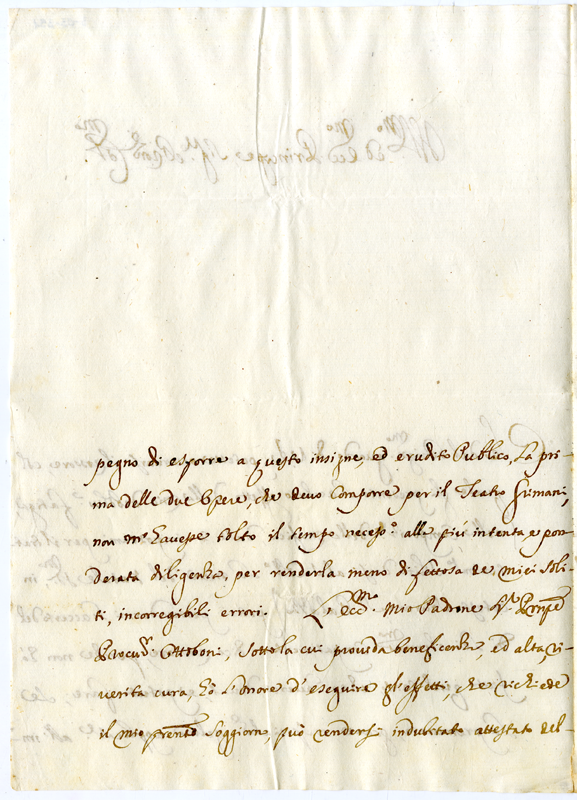 pegno di esporre a questo insigne, ed erudito Publico, La pri-
ma delle due Opere, che devo Comporre per il Teatro Grimani,
non m'havesse tolto il tempo necess.º alla più intenta e pon-
derata diligenza, per renderla meno difettosa de miei soli-
ti, incorregibili errori. L'ecc.mo Mio Padrone Sr. Prnpe
Procur.r Ottoboni, sotto la cui provida beneficenza, ed alta, ri-
verita cura, hò l'onore d'eseguire gl'effetti, che richiede
il mio prente Soggiorno, può rendersi indubitato attestato del-